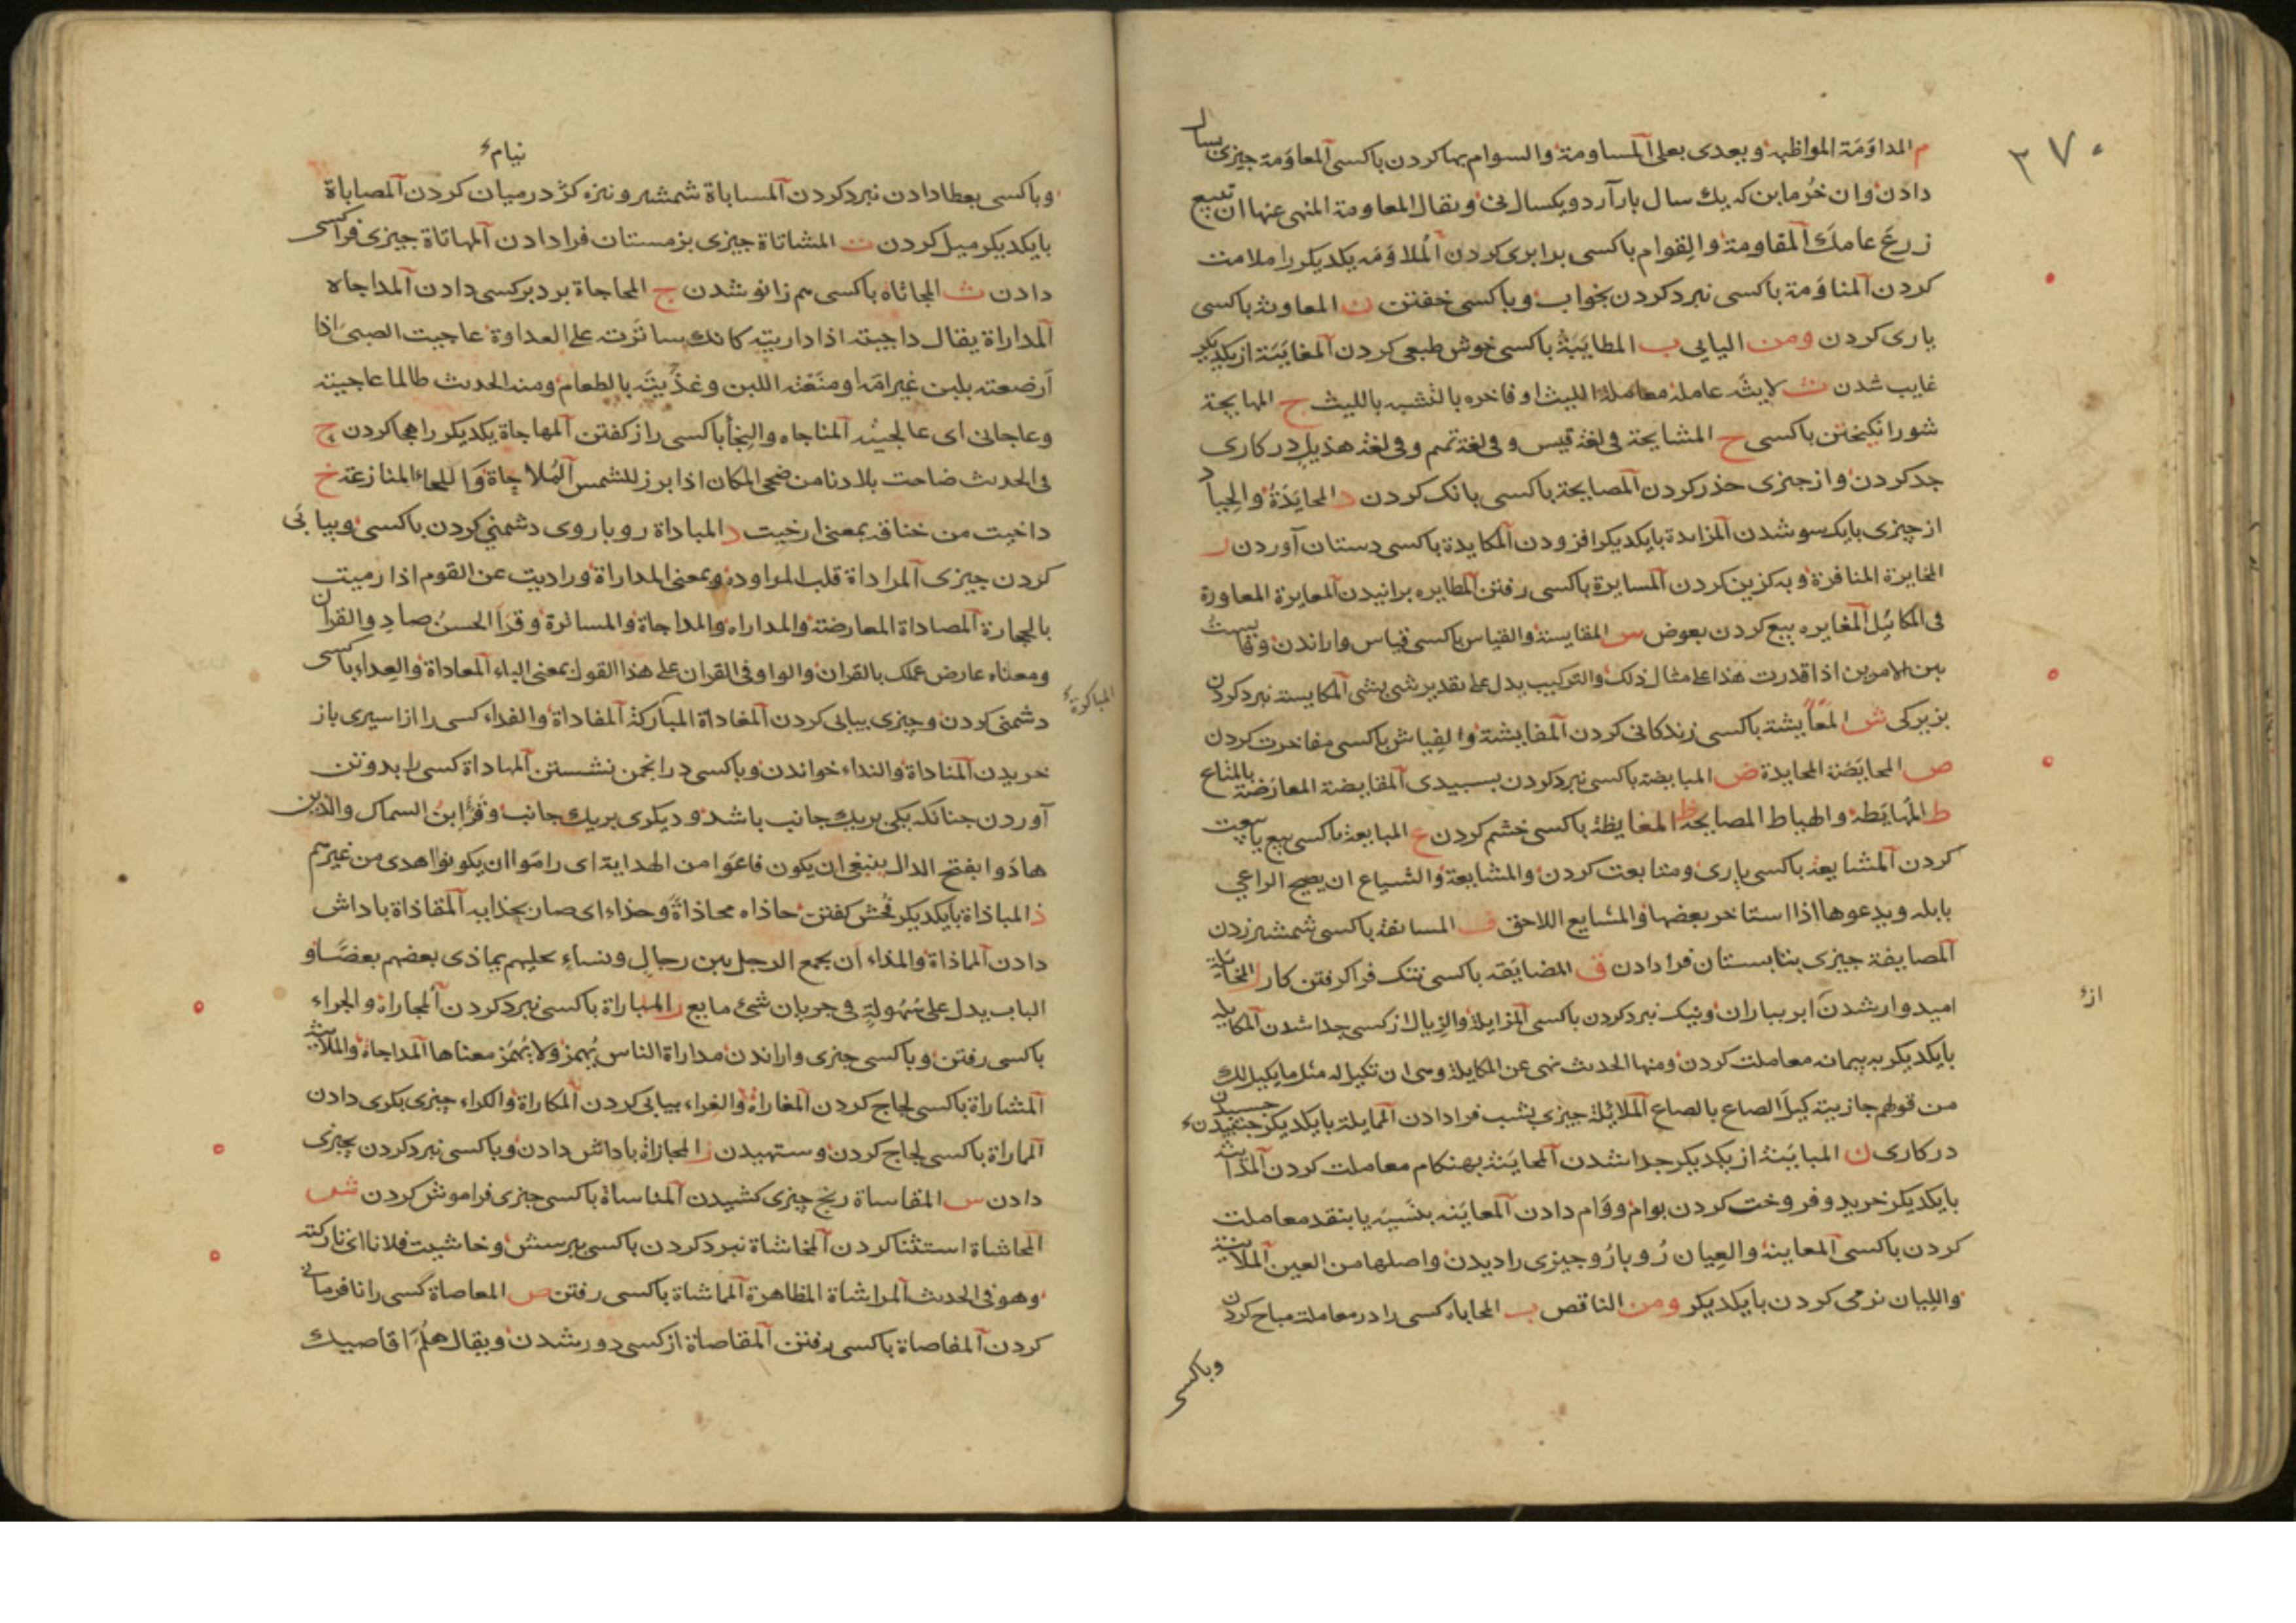 ٣٧٠
م المداوَمَة المواظبة وبعدى بعلى المساومة والسوام بها كردن با كسى المعاوَمة چيزى بسال
دادن وان خُرمابن كه يك سال بار آرد ويكسال نى ويقال المعاومة المنهى عنها ان تبيع
زرعَ عامك المقاومة والقِوام با كسى برابرى كردن المُلاوَمَه يكديكر را ملامت
كردن المناوَمة با كسى نبرد كردن بخواب وبا كسى خفتن ن المعاونه با كسى
يارى كردن ومن اليايى ب المطايَبَة با كسى خوش طبعى كردن المغايَبَة از يكديكر
غايب شدن ث لايثه عامله معاملة الليث او فاخره بالتشبه بالليث ج المهايجة
شور انكيختن با كسى ح المشايحة فى لغة قيس و فى لغة تميم وفى لغة هذيل در كارى
جد كردن واز چيزى حذر كردن المصايحة با كسى بانك كردن د المحايَدَةُ والحِياد
از چيزى بايك سو شدن المزايدة بايكديكر افزودن المكايدة با كسى دستان آوردن ر
المخايرة المنافرة وبه كزين كردن المسايرة با كسى رفتن المطايره پرانيدن المعايرة المعاورة
فى المكائيل المغايره بيع كردن بعوض س المقايسة والقياس با كسى قياس واراندن وقايست
بين الامرين اذا قدرت هذا على مثال ذلك والتركيب يدل على تقدير شى بشى المكايسة نبرد كردن
بزيركى ش المعايشة با كسى زندكانى كردن المفايشة والفِياش با كسى مفاخرت كردن
ص المحايَصَة المحايدة ض المبايضة با كسى نبرد كردن بسپيدى المقايضة المعارضة بالمتاع
ط المُهايَطة والهياط المصايحة ظ المغايظة با كسى خشم كردن ع المبايعة با كسى بيع يا بيعت
كردن المشايعة با كسى يارى ومتابعت كردن والمشايعة والشياع ان يصيح الراعي
بابله ويدعوها اذا استاخر بعضها والمشايع اللاحق ف المسايفة با كسى شمشير زدن
المصايفة چيزى بتابستان فرا دادن ق المضايَقه با كسى تنك فرا كرفتن كار ل المخايلة
اميدوار شدن ابر بباران ونيك نبرد كردن با كسى المزايلة والزيال از كسى جدا شدن المكايله
بايكديكر به پيمانه معاملت كردن ومنها الحديث نهى عن المكايلة وهى ان تكيل له مثل ما يكيل لك
من قولهم جازيته كيلَ الصاع بالصاع الملائلة چيزى بشب فرا دادن المايلة بايكديكر چسپيدن
در كارى ن المبايَنة از يكديكر جدا شدن المحايَنة بهنكام معاملت كردن المداينه
بايكديكر خريد وفروخت كردن بوام ووَام دادن المعايَنه بنَسيَه يا بنقد معاملت
كردن با كسى المعاينة والعِيان رُو بارُو چيزى را ديدن واصلها من العين الملاينة
والليان نرمى كردن با يكديكر ومن الناقص ب المحاباه كسى را در معاملت مباح كردن
وبا كسى
از
نيام
وبا كسى بعطا دادن نبرد كردن المساباة شمشير ونيزه كژ در ميان كردن المصاباة
بايكديكر ميل كردن ت المشاتاة چيزى بزمستان فرا دادن المهاتاة چيزى فرا كسى
دادن ث المجاثاه با كسى هم زانو شدن ج المحاجاة برد بر كسى دادن المداجاه
المداراة يقال داجيته اذا داريته كانك ساترته على العداوة عاجيت الصبى اذا
اَرضعته بلبن غير امّه او منَعَته اللبن وغذّيتَه بالطعام ومنه الحديث طالما عاجيته
وعاجانى اى عالجيته المناجاه والنِجأ با كسى راز كفتن المهاجاة يكديكر را هجا كردن ح
فى الحديث ضاحت بلادنا من ضحى المكان اذا برز للشمس المُلاحاة واللحاء المنازعة خ
داخيت من خناقه بمعنى ارخيت د المباداة رو با روى دشمنى كردن با كسى وبيابى
كردن چيزى المراداة قلب المراوده وبمعنى المداراة وراديت عن القوم اذا رميت
بالحجارة المصاداة المعارضة والمداراه والمداجاة والمساترة وقَرَأ الحسنُ صادِ والقرآن
ومعناه عارض عملك بالقران والواو فى القران على هذا القول بمعنى الباء المعاداة والعِداء با كسى
المباكرة
دشمنى كردن وچيزى بيابى كردن المغاداة المباركة المفاداة والفداء كسى را از اسيرى باز
خريدن المناداة والنداء خواندن وبا كسى در انجمن نشستن المهاداة كسى را بدو تن
آوردن چنانكه يكى بريك جانب باشد و ديكرى بريك جانب وقرأ ابن السماك والذين
هادَوا بفتح الدال ينبغى ان يكون فاعَوا من الهداية اى رامَوا ان يكونوا اهدى من غيرهم
ذ المباذاة بايكديكر فُحش كفتن حاذاه محاذاةً وحذاء اى صار بحذايه المقاذاة پاداش
دادن المماذاة والمذاء ان يجمع الرجل بين رجالٍ ونساءٍ يخليهم يماذى بعضهم بعضًا و
الباب يدل على سُهُولةٍ فى جريان شئ مايع ر المباراة با كسى نبرد كردن المجاراة والجراء
با كسى رفتن وبا كسى چيزى واراندن مداراة الناس يُهمز ولا يُهمَز معناها المداجاة والملاينة
المشاراة با كسى لجاج كردن المغاراة والغراء بيابى كردن المكاراة والكراء چيزى بكرى دادن
المماراة با كسى لجاج كردن وستهيدن ز المجازاة پاداش دادن وبا كسى نبرد كردن بچيزى
دادن س المقاساة رنج چيزى كشيدن المناساة با كسى چيزى فراموش كردن ش
المحاشاة استثنا كردن المخاشاة نبرد كردن با كسى بترسش وخاشيت فلانا اى تاركته
وهو فى الحديث المراشاة المظاهرة المماشاة با كسى رفتن ص المعاصاة كسى را نافرمانى
كردن المفاصاة با كسى رفتن المقاصاة از كسى دور شدن ويقال هلُمّ اقاصيك